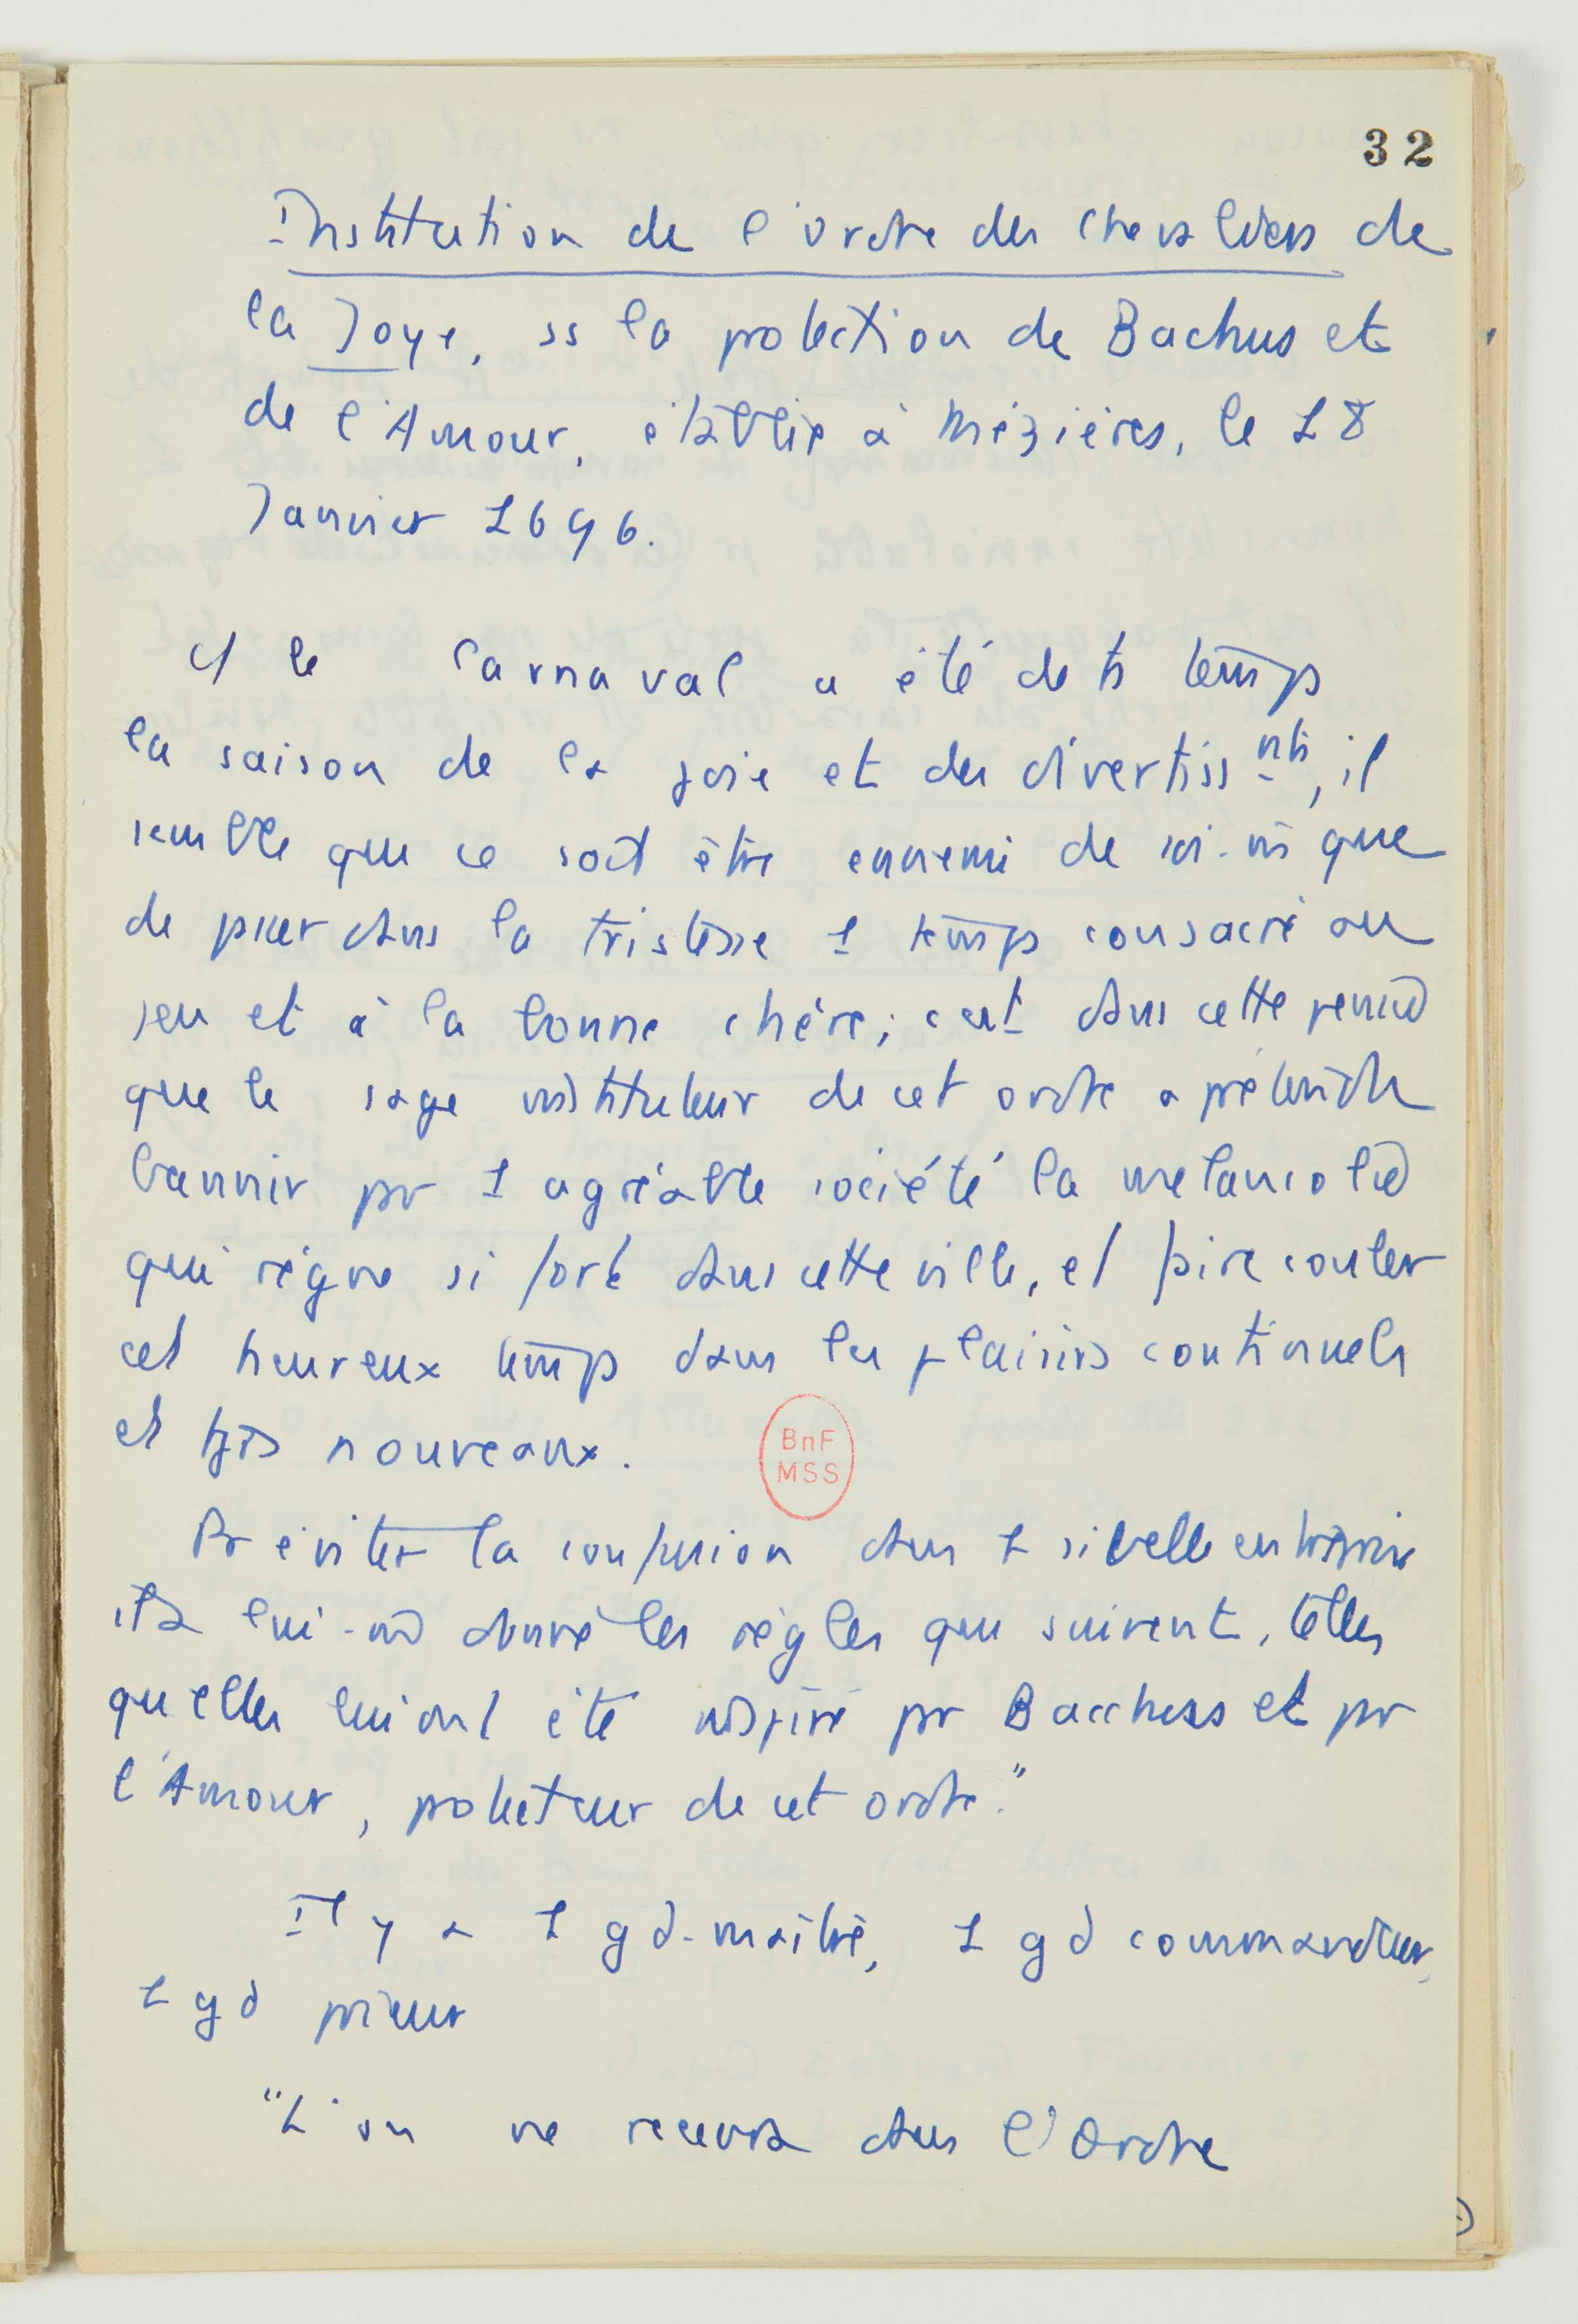 32
Institution de l'ordre des Chevaliers de
la Joye, ss la protection de Bachus et
de l'Amour, établie à Mézières, le 18
Janvier 1696.
le Carnaval a été de ts temps
la saison de la joie et des divertiss nts, il
semble que ce soit être ennemi de soi-m̄ que
de passer dans la tristesse 1 temps consacré au
jeu et à la bonne chère; c'est dans cette pensée
que le sage instituteur de cet ordre a prétendu
bannir par 1 agréable société la mélancolie
qui règne si fort dans cette ville, et faire couler
cet heureux temps dans les plaisirs continuels
et tjrs nouveaux.
Pr éviter la confusion dans 1 si belle entreprise
il a lui-m̄ donné les règles qui suivent, telles
qu'elles lui ont été inspiré par Bacchus et par
l'Amour, protecteur de cet ordre."
BnF
MSS
Il y a 1 gd-maître, 1 gd commandeur,
1 gd prieur
"L'on ne recevra dans l'Ordre